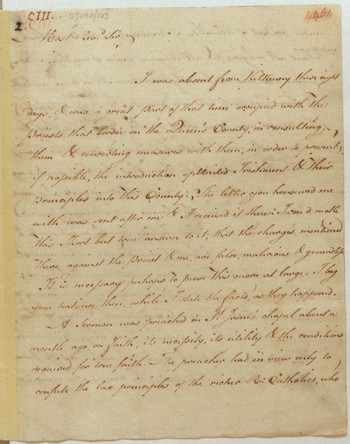 CIII.
2
Most Revd. Sir,
I was absent from Kilkenny these eight
days, & was a great part of that time occupied with the
Priests that border on the Queen's County, in consulting
them & concerting measures with them, in order to prevent,
if possible, the introduction of United Irishmen & their
Principles into this County. The letter you honoured me
with was sent after me & I received it there. I could make
this short but true answer to it; that the charges mentioned
there against the Priest & me, are false, malicious & groundless.
It is necessary perhaps to prove this more at large. I beg
your patience then, while I state the facts, as they happened.
A Sermon was preached in St. James' chapel about a
month ago, on faith, its necessity, its utility & the conditions
required for true faith. The preacher had in view only to
confute the lax principles of the richer Rn. Catholics, who